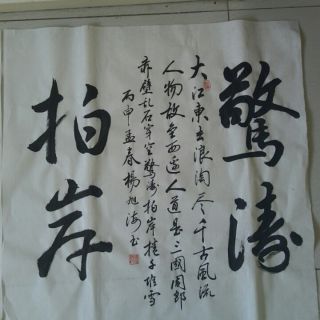 驚涛
大江東去浪淘尽千古風流
人物故垒西邊人道是三國周郎
赤壁乱石穿空驚涛拍岸捲千堆雪
丙申孟春楊旭海书
拍岸